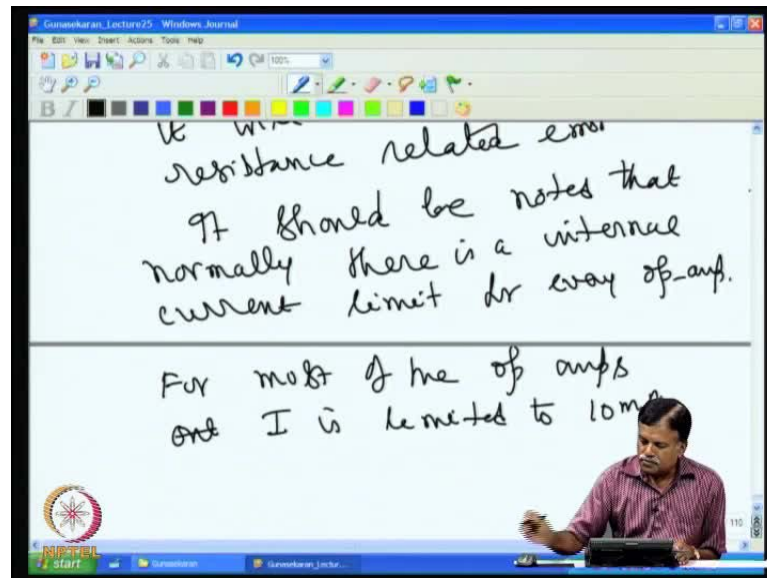 Gunasekaran_Lecture25 - Windows Journal
File Edit View Insert Actions Tools Help
100%
B I
resistance related error
It should be notes that
normally there is a internal
current limit for every op-amp.
For most of the op amps
I is limited to 10m
110
NPTEL
start Gunasekaran Gunasekaran_Lectur...